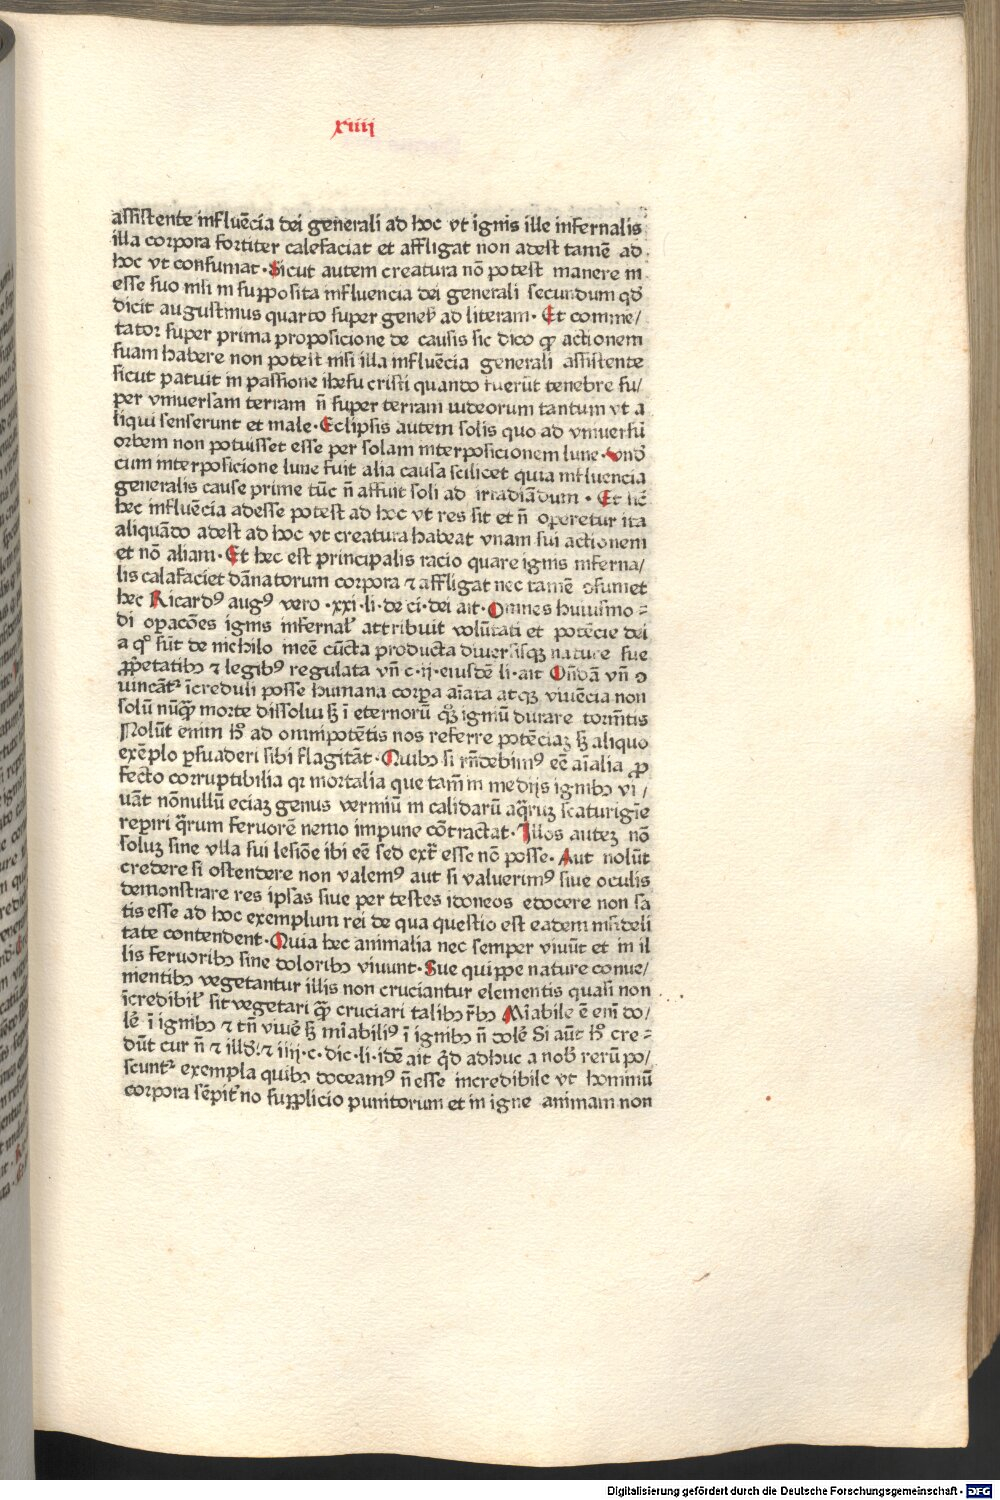 xiiij
assistente influēcia dei generali ad hoc vt ignis ille infernalis
illa corpora fortiter calefaciat et affligat non adest tamē ad
hoc vt consumat · Sicut autem creatura nō potest manere in
esse suo nisi in supposita influencia dei generali secundum qd̕
dicit augustinus quarto super geneß ad literam · Et comme/
tator super prima proposicione de causis sic dico ꝙ actionem
suam habere non potest nisi illa influēcia generali assistente
sicut patuit in passione ihesu cristi quando fuerūt tenebre su/
per vniuersam terram n̄ super terram iudeorum tantum vt a
liqui senserunt et male · Eclipsis autem solis quo ad vniuersū
orbem non potuisset esse per solam interposicionem lune · Vnd̕
cum interposicione lune fuit alia causa scilicet quia influencia
generalis cause prime tūc n̄ affuit soli ad irradiādum · Et sic̄
hec influēcia adesse potest ad hoc vt res sit et n̄ operetur ita
aliquādo adest ad hoc vt creatura habeat vnam sui actionem
et nō aliam · Et hec est principalis racio quare ignis inferna/
lis calafaciet dānatorum corpora ⁊ affligat nec tamē ↄsumet
hec Ricardꝰ augꝰ vero · xxi · li · de ci · dei ait · Omnes huiusmo=
di oꝑacōes ignis infernal̕ attribuit volūtati et potēcie dei
a qͦ sūt de nichilo meē cūcta producta diuersisqꝫ nature sue
ꝓpetatibꝫ ⁊ legibꝰ regulata vn̄ c · ij · eiusdē li · ait Ondā vn̄ ↄ
uincātᷣ īcreduli posse humana corpa aīata atqꝫ viuēcia non
solū nūꝙ̄ morte dissolui sꝫ ī eternorū qͦꝫ igniū durare torm̄tis
Nolūt enim hͦ ad omnipotētis nos referre potēciaꝫ sꝫ aliquo
exēplo ꝑsuaderi sibi flagitāt · Quibꝫ si rn̄debimꝰ eē aīalia ꝓ
fecto corruptibilia qr mortalia que tam̄ in medijs ignibꝫ vi/
uāt nōnullū eciaꝫ genus vermiū in calidarū aq̄ruꝫ scaturigīe
reꝑiri q̄rum feruorē nemo impune cōtractat · Illos auteꝫ nō
soluꝫ sine vlla sui lesiōe ibi eē sed ext̄ esse nō posse · Aut nolūt
credere si ostendere non valemꝰ aut si valuerimꝰ siue oculis
demonstrare res ipsas siue per testes idoneos edocere non sa
tis esse ad hoc exemplum rei de qua questio est eadem infideli
tate contendent · Quia hec animalia nec semper viuūt et in il
lis feruoribꝫ sine doloribꝫ viuunt · Sue quippe nature conue/
nientibꝫ vegetantur illis non cruciantur elementis quasi non
īcredibil̕ sit vegetari ꝙ̄ cruciari talibꝫ r̄bꝫ Miabile ē eni do/
lē ī ignibꝫ ⁊ tn̄ viuē sꝫ mīabiliꝰ ī ignibꝫ n̄ dolē Si aūt hͦ cre=
dūt cur n̄ ⁊ illd̕ · ⁊ iiij · c · dic · li · idē ait q̄d adhuc a nob̕ rerū po/
scuntᷣ exempla quibꝫ doceamꝰ n̄ esse incredibile vt hominū
corpora sēpitᷣno supplicio punitorum et in igne animam non
Digitalisierung gefördert durch die Deutsche Forschungsgemeinschaft · DFG